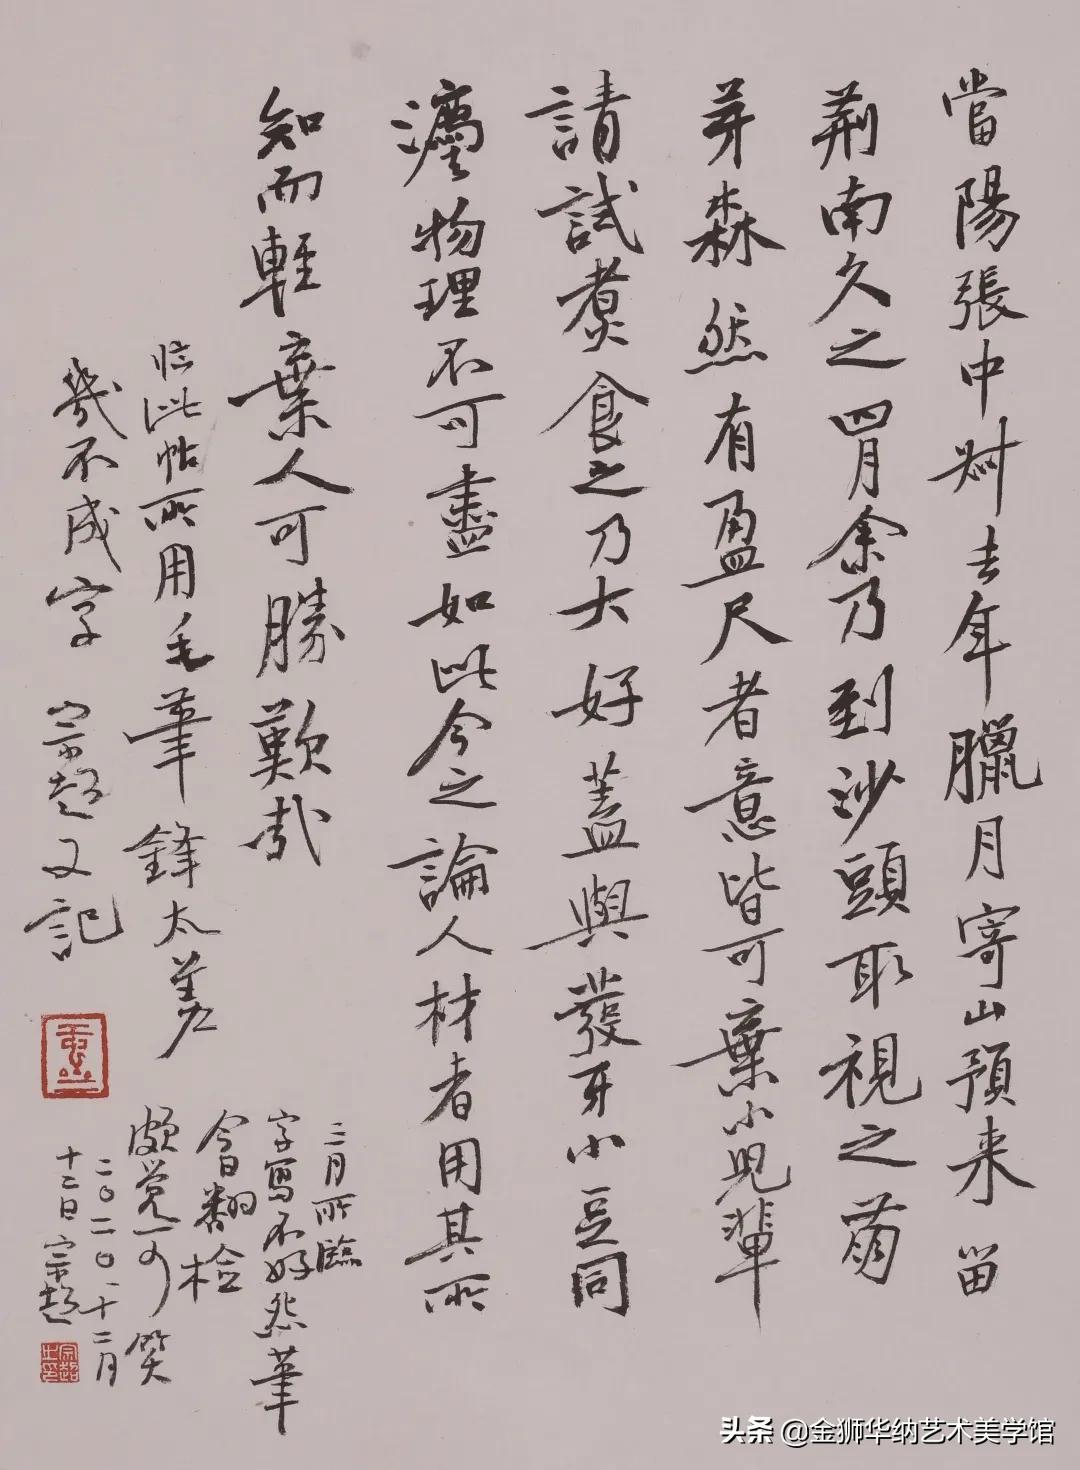 當陽張中叔去年臘月寄山預来留
荆南久之四月余乃到沙頭取視之萌
芽森然有盈尺者意皆可棄小兒輩
請試煮食之乃大好蓋與發牙小豆同
灋物理不可盡如此今之論人材者用其所
知而輕棄人可勝歎哉
临此帖所用毛筆鋒太差
幾不成字 宗超又記
二月所臨
字寫不好怨筆
今日翻检
頗覺可笑
二〇二〇.十二月
十二日宗超
宗超之印
头条 @金狮华纳艺术美学馆